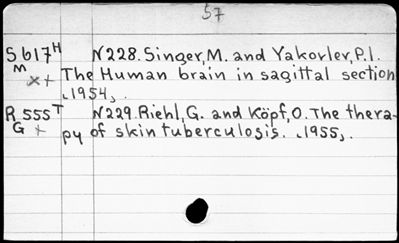 57
S 617ᴴ N228. Singer, M. and Yakovlev, P.I.
M x+ The Human brain in sagittal section
⌞1954⌟.
R 555ᵀ N229. Riehl, G. and Köpf, O. The thera-
G + py of skin tuberculosis. ⌞1955⌟.